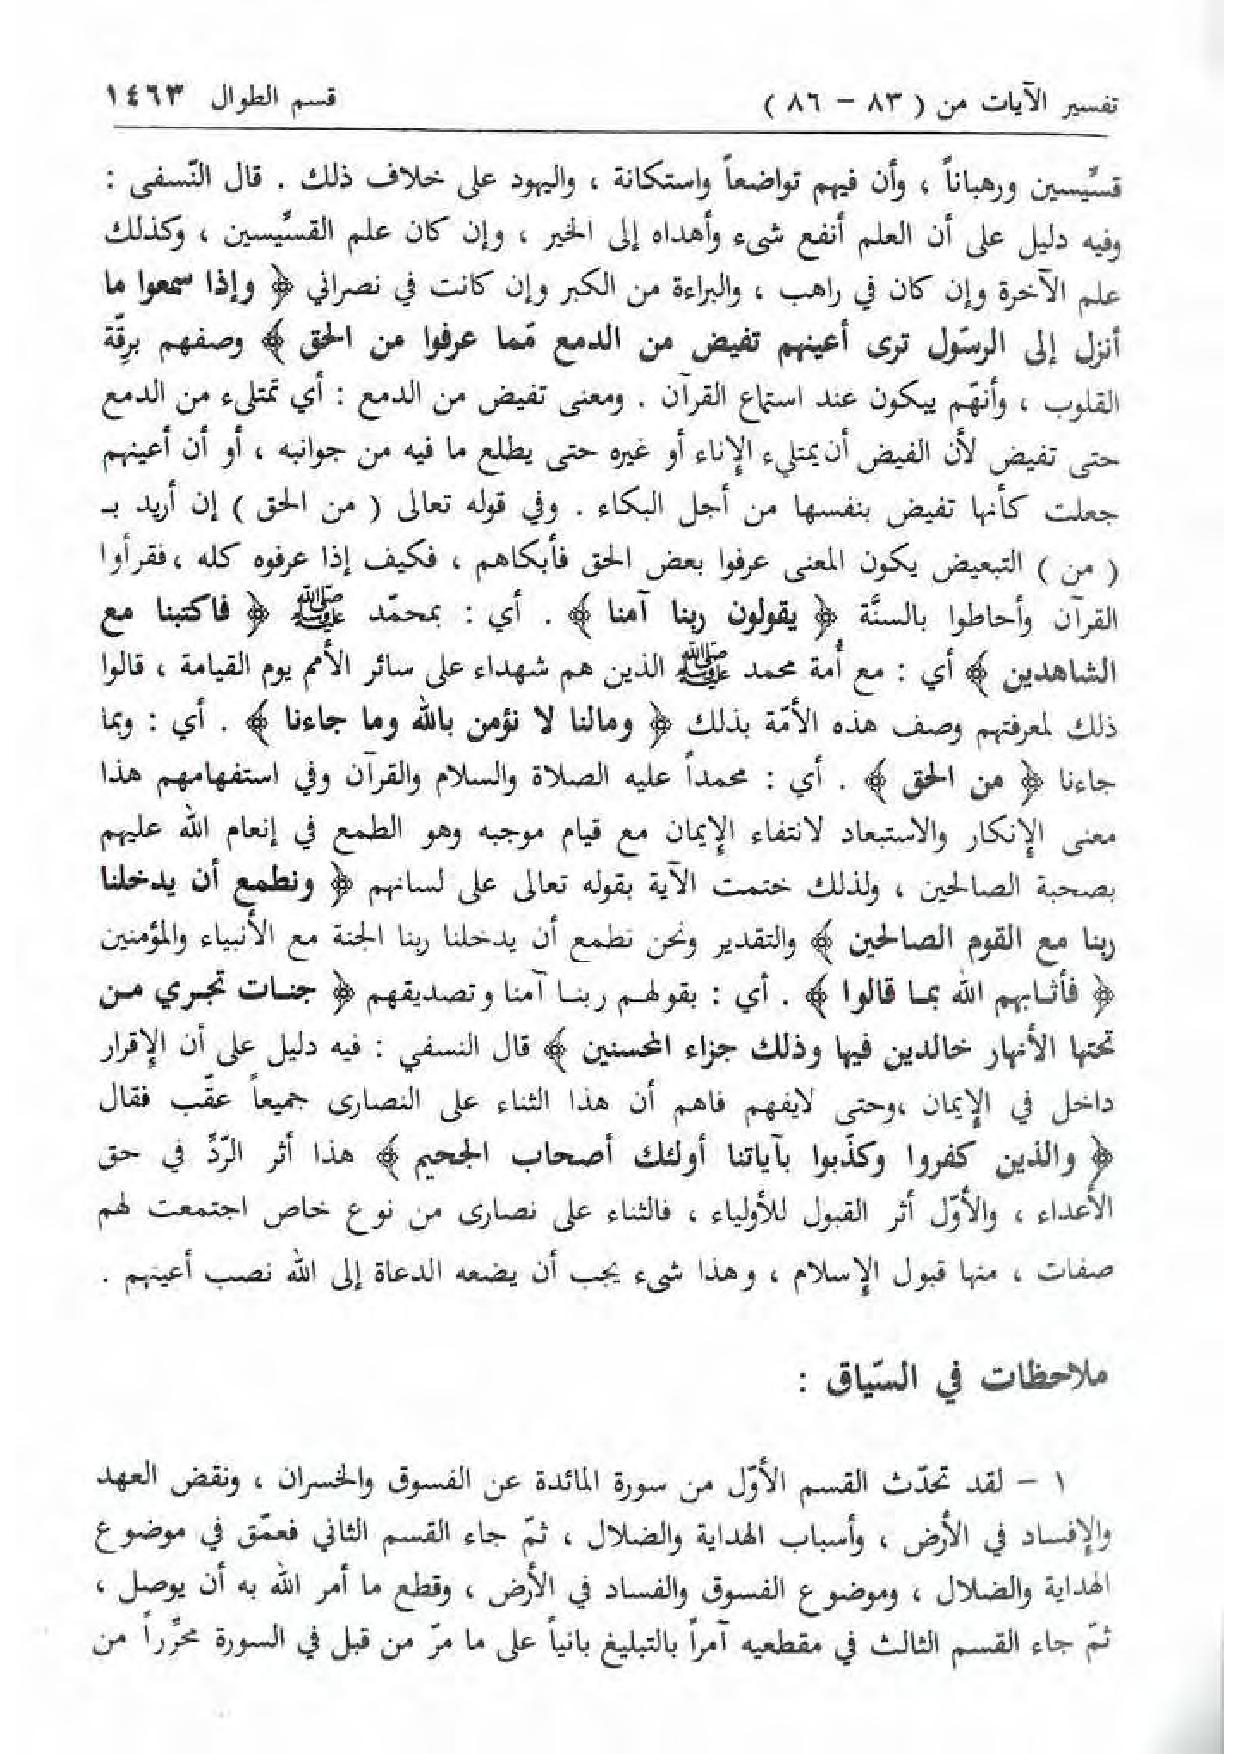 تفسير الآيات من ( ٨٣ – ٨٦ ) قسم الطوال ١٤٦٣
قسّيسين ورهباناً ، وأن فيهم تواضعاً واستكانة ، واليهود على خلاف ذلك . قال النّسفى :
وفيه دليل على أن العلم أنفع شىء وأهداه إلى الخير ، وإن كان علم القسّيسين ، وكذلك
علم الآخرة وإن كان في راهب ، والبراءة من الكبر وإن كانت في نصراني ﴿ وإذا سمعوا ما
أنزل إلى الرسّول ترى أعينهم تفيض من الدمع مّما عرفوا من الحق ﴾ وصفهم برقّة
القلوب ، وأنهّم يبكون عند استماع القرآن . ومعنى تفيض من الدمع : أي تمتلىء من الدمع
حتى تفيض لأن الفيض أن يمتلىء الإناء أو غيره حتى يطلع ما فيه من جوانبه ، أو أن أعينهم
جعلت كأنها تفيض بنفسها من أجل البكاء . وفي قوله تعالى ( من الحق ) إن أريد بـ
( من ) التبعيض يكون المعنى عرفوا بعض الحق فأبكاهم ، فكيف إذا عرفوه كله ، فقرأوا
القرآن وأحاطوا بالسنَّة ﴿ يقولون ربنا آمنا ﴾ . أي : بمحمّد ﷺ ﴿ فاكتبنا مع
الشاهدين ﴾ أي : مع أُمة محمد ﷺ الذين هم شهداء على سائر الأمم يوم القيامة ، قالوا
ذلك لمعرفتهم وصف هذه الأمّة بذلك ﴿ ومالنا لا نؤمن بالله وما جاءنا ﴾ . أي : وبما
جاءنا ﴿ من الحق ﴾ . أي : محمداً عليه الصلاة والسلام والقرآن وفي استفهامهم هذا
معنى الإنكار والاستبعاد لانتفاء الإيمان مع قيام موجبه وهو الطمع في إنعام الله عليهم
بصحبة الصالحين ، ولذلك ختمت الآية بقوله تعالى على لسانهم ﴿ ونطمع أن يدخلنا
ربنا مع القوم الصالحين ﴾ والتقدير ونحن نطمع أن يدخلنا ربنا الجنة مع الأنبياء والمؤمنين
﴿ فأثابهم الله بما قالوا ﴾ . أي : بقولهم ربنا آمنا وتصديقهم ﴿ جنات تجري من
تحتها الأنهار خالدين فيها وذلك جزاء المحسنين ﴾ قال النسفي : فيه دليل على أن الإقرار
داخل في الإيمان ،وحتى لايفهم فاهم أن هذا الثناء على النصارى جميعاً عقّب فقال
﴿ والذين كفروا وكذّبوا بآياتنا أولئك أصحاب الجحيم ﴾ هذا أثر الرّدِّ في حق
الأعداء ، والأوّل أثر القبول للأولياء ، فالثناء على نصارى من نوع خاص اجتمعت لهم
صفات ، منها قبول الإسلام ، وهذا شىء يجب أن يضعه الدعاة إلى الله نصب أعينهم .
ملاحظات في السّياق :
١ – لقد تحدّث القسم الأوّل من سورة المائدة عن الفسوق والخسران ، ونقض العهد
والإفساد في الأرض ، وأسباب الهداية والضلال ، ثمّ جاء القسم الثاني فعمّق في موضوع
الهداية والضلال ، وموضوع الفسوق والفساد في الأرض ، وقطع ما أمر الله به أن يوصل ،
ثمّ جاء القسم الثالث في مقطعيه آمراً بالتبليغ بانياً على ما مرّ من قبل في السورة محرِّراً من